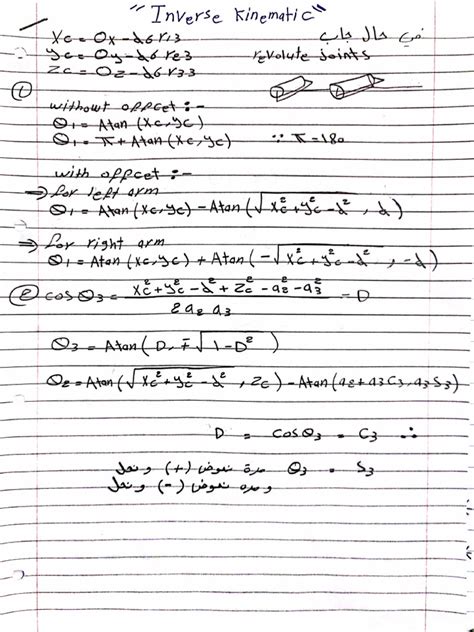 "Inverse Kinematic"
Xc = Ox - d6 r13
في حال جاب
yc = Oy - d6 r23
revolute joints
Zc = Oz - d6 r33
①
without offcet :-
θ1 = Atan (Xc, yc)
θ1 = π + Atan (Xc, yc) ∵ π = 180
with offcet :-
⇒ for left arm
θ1 = Atan (Xc, yc) - Atan (√Xc² + yc² - d², d)
⇒ for right arm
θ1 = Atan (Xc, yc) + Atan (-√Xc² + yc² - d², -d)
② cos θ3 = Xc² + yc² - d² + Zc² - a2² - a3² / 2 a2 a3 = D
θ3 = Atan (D, ∓√1 - D²)
θ2 = Atan (√Xc² + yc² - d², Zc) - Atan (a2 + a3 C3, a3 S3)
D = cos θ3 = C3 ∴
θ3 = S3 مرة نعوض (+) ونحل
ومره نعوض (-) ونحل